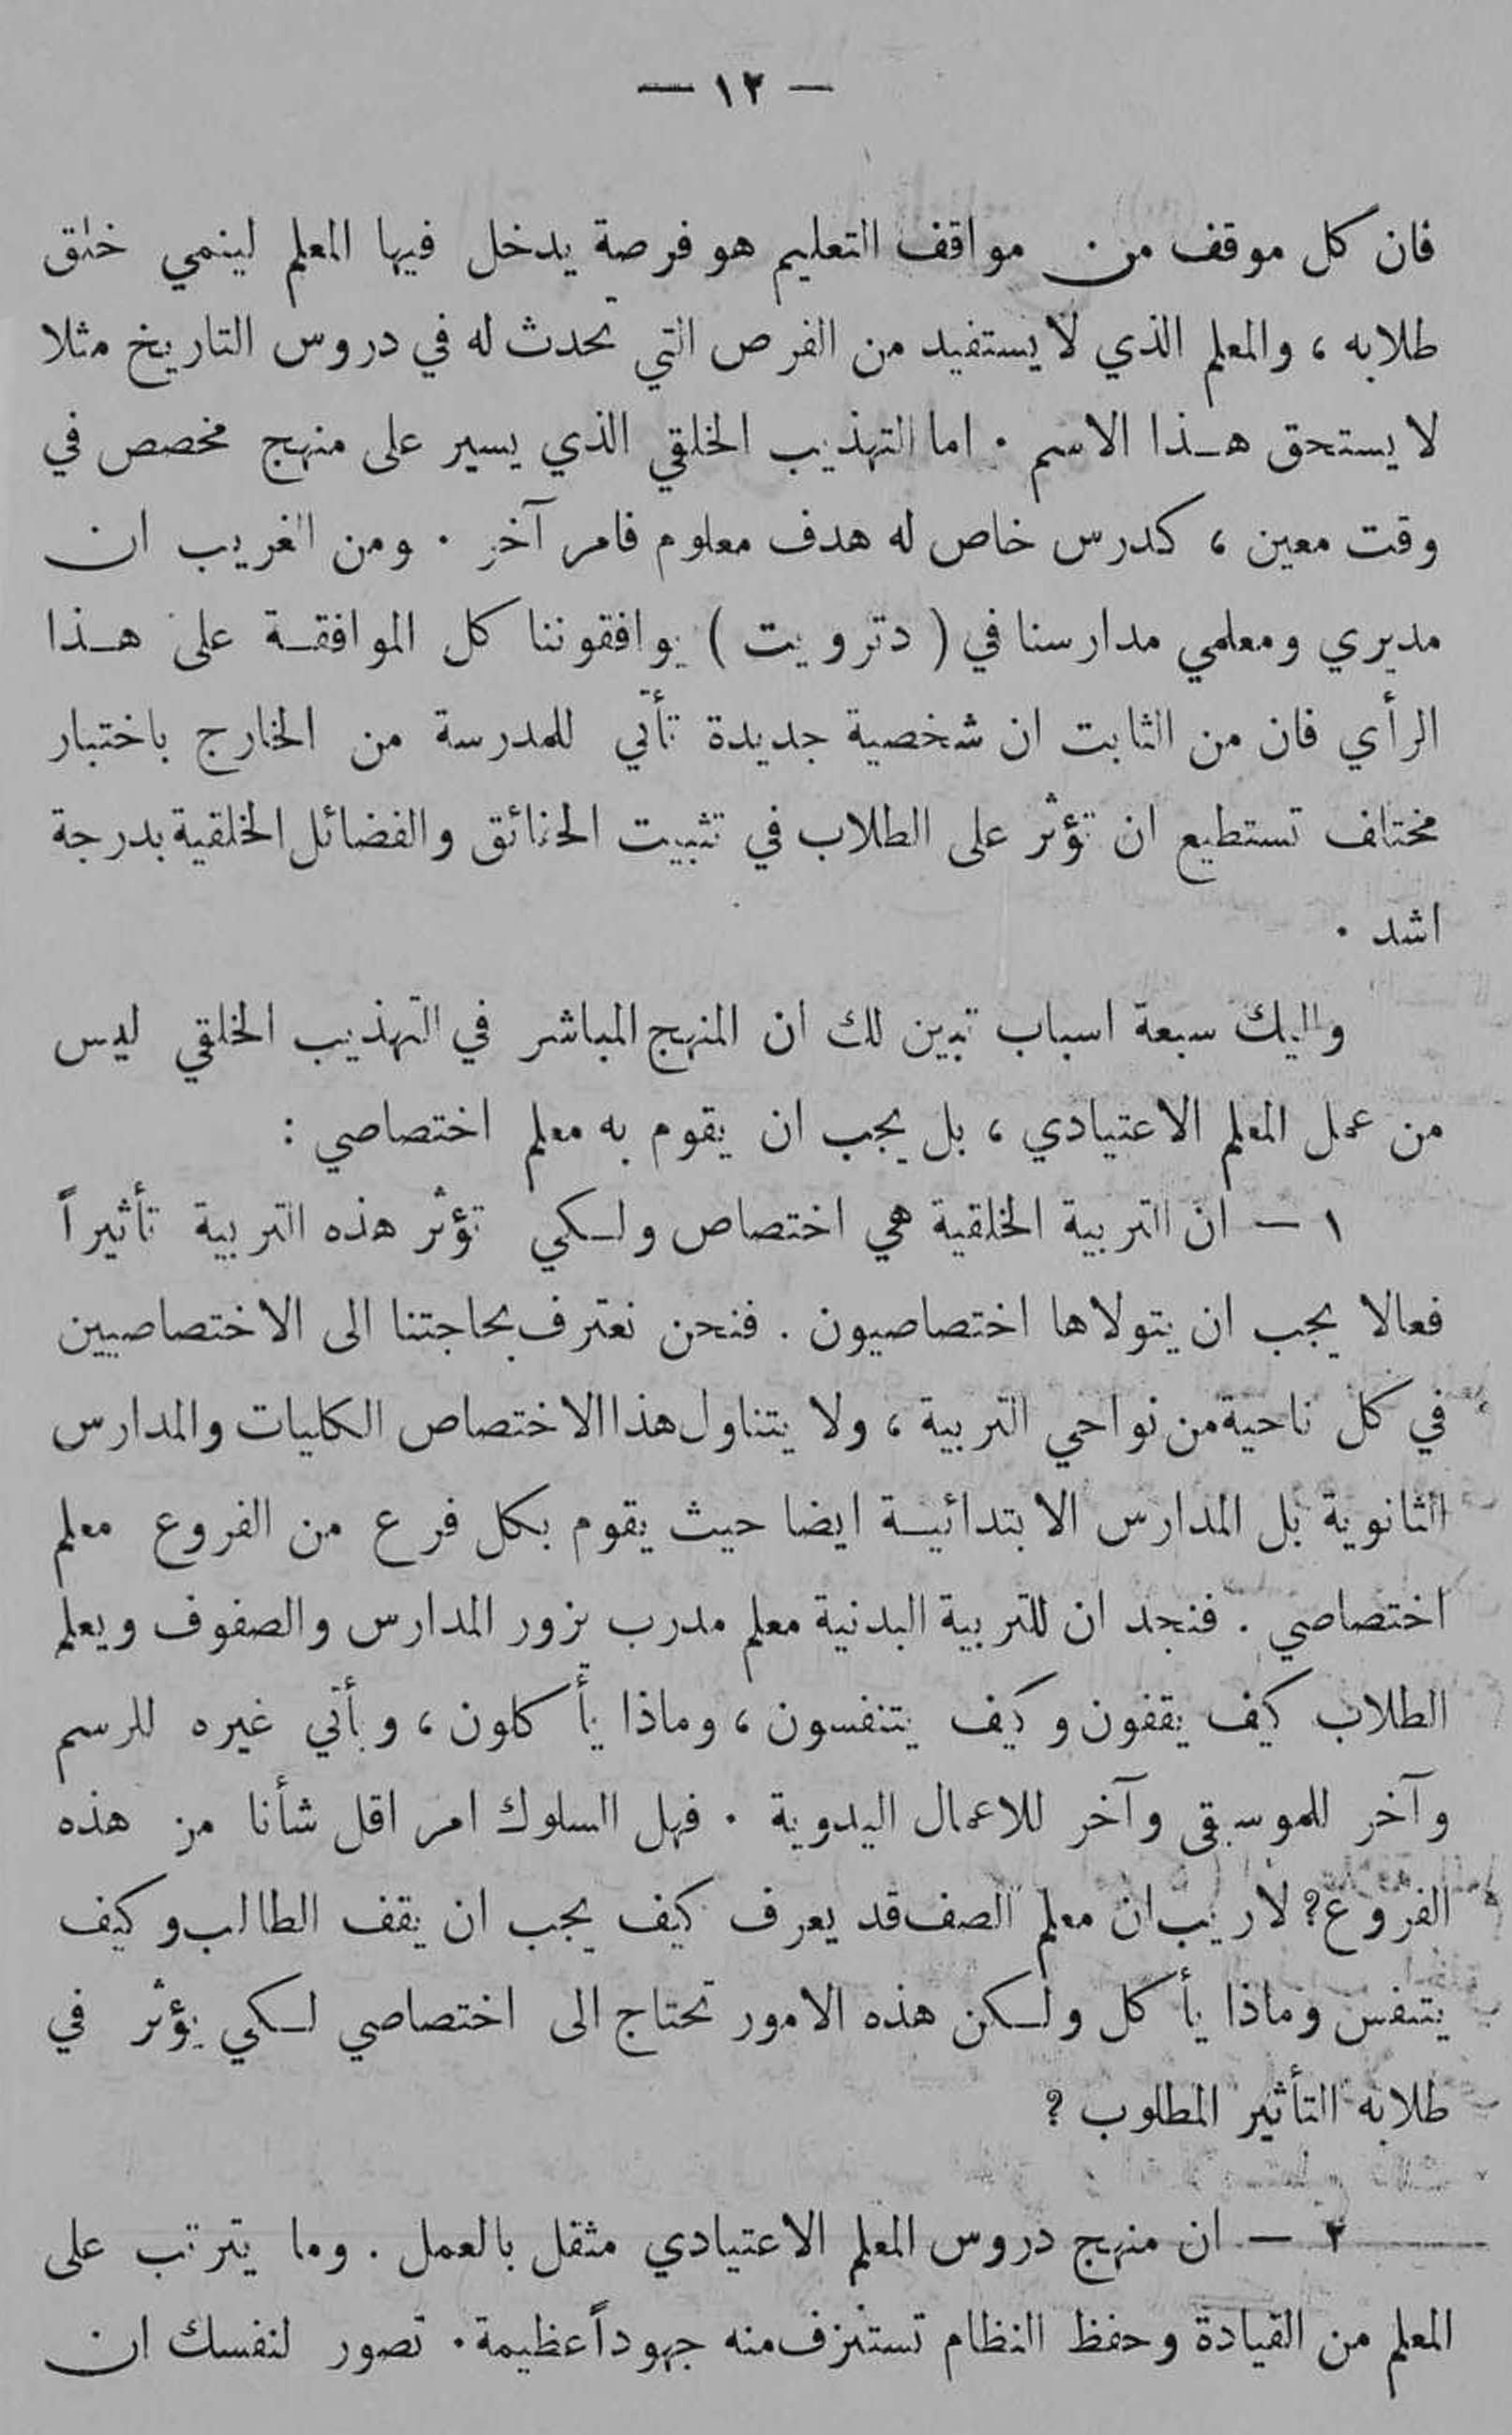 — ١٢ —
فان كل موقف من مواقف التعليم هو فرصة يدخل فيها المعلم لينمي خلق
طلابه ، والمعلم الذي لا يستفيد من الفرص التي تحدث له في دروس التاريخ مثلا
لا يستحق هـذا الاسم . اما التهذيب الخلقي الذي يسير على منهج مخصص في
وقت معين ، كدرس خاص له هدف معلوم فامر آخر . ومن الغريب ان
مديري ومعلمي مدارسنا في ( دترويت ) يوافقوننا كل الموافقـة على هـذا
الرأي فان من الثابت ان شخصية جديدة تأتي للمدرسة من الخارج باختبار
مختلف تستطيع ان تؤثر على الطلاب في تثبيت الحقائق والفضائل الخلقية بدرجة
اشد .
واليك سبعة اسباب تبين لك ان المنهج المباشر في التهذيب الخلقي ليس
من عمل المعلم الاعتيادي ، بل يجب ان يقوم به معلم اختصاصي :
١ — ان التربية الخلقية هي اختصاص ولـكي تؤثر هذه التربية تأثيراً
فعالا يجب ان يتولاها اختصاصيون . فنحن نعترف بحاجتنا الى الاختصاصيين
في كل ناحية من نواحي التربية ، ولا يتناول هذا الاختصاص الكليات والمدارس
الثانوية بل المدارس الابتدائيـة ايضا حيث يقوم بكل فرع من الفروع معلم
اختصاصي . فنجد ان للتربية البدنية معلم مدرب يزور المدارس والصفوف ويعلم
الطلاب كيف يقفون وكيف يتنفسون ، وماذا يأكلون ، ويأتي غيره للرسم
وآخر للموسيقى وآخر للاعمال اليدوية . فهل السلوك امر اقل شأنا من هذه
الفروع؟ لاريب ان معلم الصف قد يعرف كيف يجب ان يقف الطالب وكيف
يتنفس وماذا يأكل ولـكن هذه الامور تحتاج الى اختصاصي لـكي يؤثر في
طلابه التأثير المطلوب ؟
٢ — ان منهج دروس المعلم الاعتيادي مثقل بالعمل . وما يترتب على
المعلم من القيادة وحفظ النظام تستنزف منه جهوداً عظيمة . تصور لنفسك ان